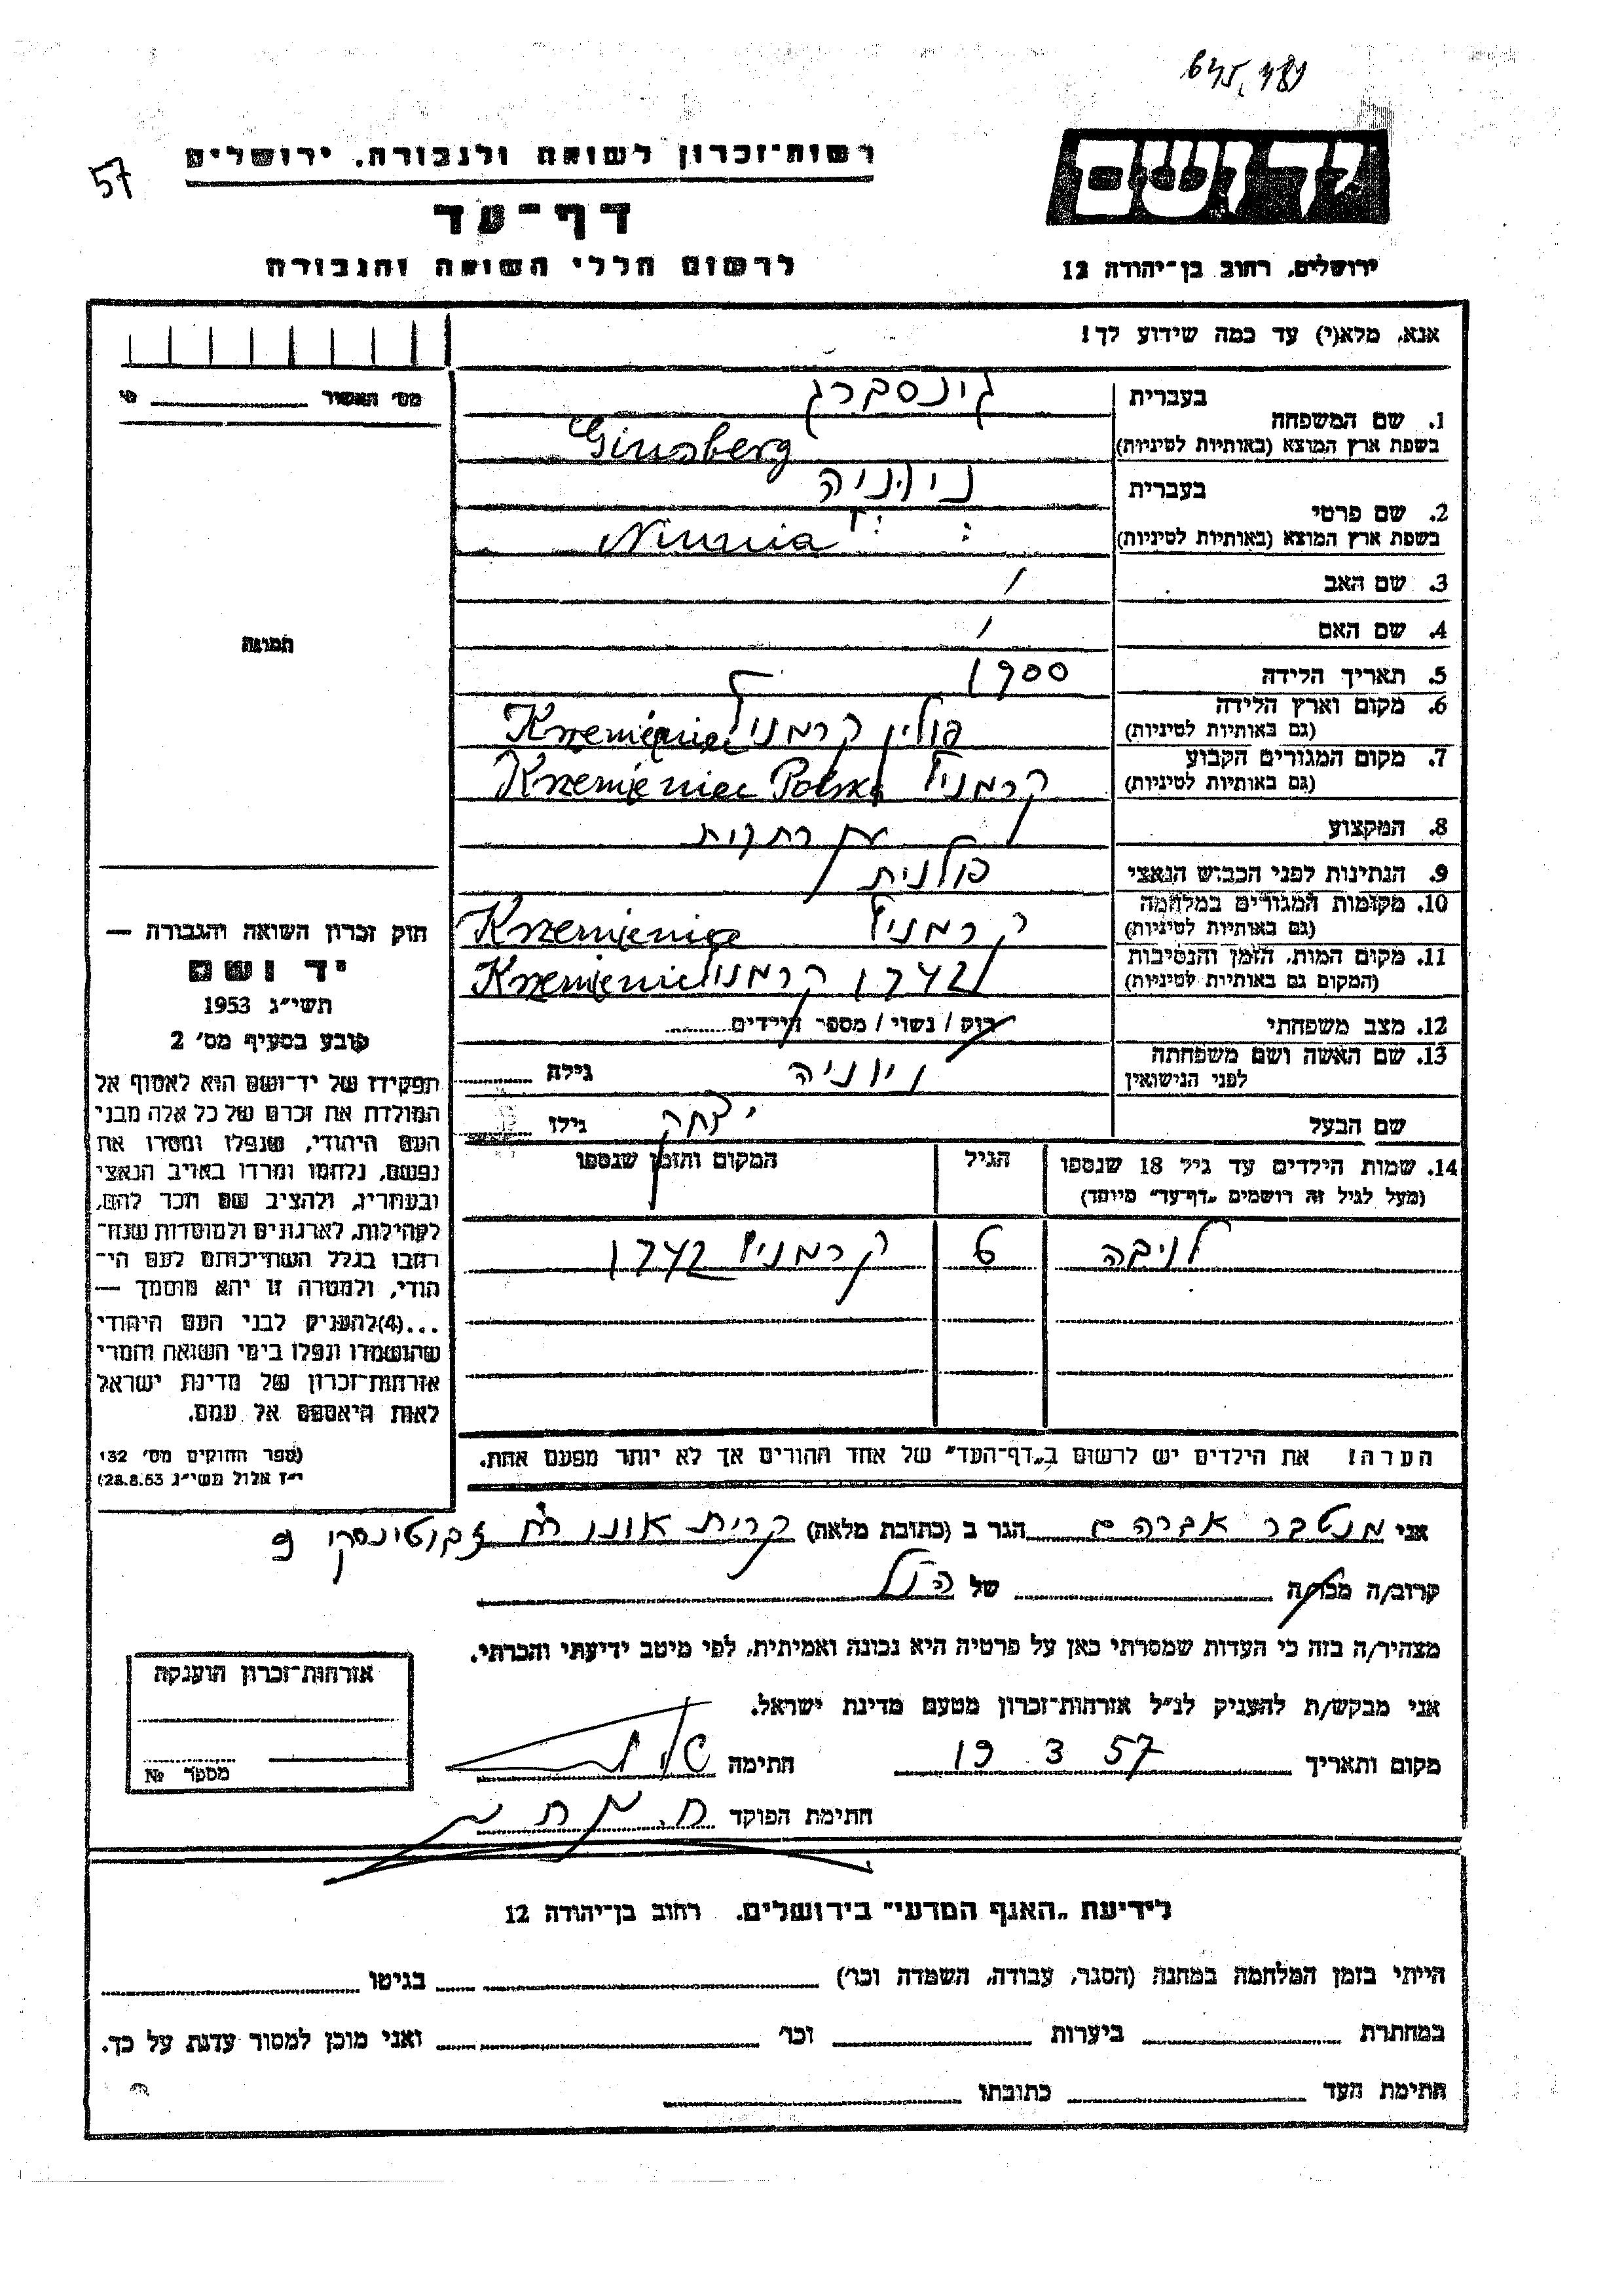 רשות־זכרון לשואה ולגבורה, ירושלים
57
יד ושם
דף־עד
לרשום חללי השואה והגבורה
ירושלים, רחוב בן־יהודה 12
אנא, מלא(י) עד כמה שידוע לך!
מס' תאשיר
1. שם המשפחה בעברית גינסברג
בשפת ארץ המוצא (באותיות לטיניות) Ginsberg
2. שם פרטי בעברית ניוניה
בשפת ארץ המוצא (באותיות לטיניות) Niunia
3. שם האב /
4. שם האם /
5. תאריך הלידה 1900
6. מקום וארץ הלידה (גם באותיות לטיניות) פולין קרמניץ Krzemieniec
7. מקום המגורים הקבוע (גם באותיות לטיניות) קרמניץ Krzemieniec Polska
8. המקצוע עקרת בית
9. הנתינות לפני הכבוש הנאצי פולנית
10. מקומות המגורים במלחמה (גם באותיות לטיניות) קרמניץ
11. מקום המות, הזמן והנסיבות (המקום גם באותיות לטיניות) 1942 קרמניץ Krzemieniec
12. מצב משפחתי רוק / נשוי / מספר הילדים
13. שם האשה ושם משפחתה לפני הנישואין ניוניה גילה
שם הבעל יצחק גילו
14. שמות הילדים עד גיל 18 שנספו
(מעל לגיל זה רושמים „דף־עד" מיוחד)
הגיל
המקום והזמן שנספו
6 קרמניץ 1942
הערה! את הילדים יש לרשום ב„דף־העד" של אחד ההורים אך לא יותר מפעם אחת.
תמונה
חוק זכרון השואה והגבורה —
יד ושם
תשי"ג 1953
קובע בסעיף מס' 2
תפקידו של יד־ושם הוא לאסוף אל
המולדת את זכרם של כל אלה מבני
העם היהודי, שנפלו ומסרו את
נפשם, נלחמו ומרדו באויב הנאצי
ובעוזריו, ולהציב שם וזכר להם,
לקהילות, לארגונים ולמוסדות שנח־
רבו בגלל השתייכותם לעם הי־
הודי, ולמטרה זו יהא מוסמך —
...(4) להעניק לבני העם היהודי
שהושמדו ונפלו בימי השואה והמרי
אזרחות־זכרון של מדינת ישראל
לאות היאספם אל עמם.
(ספר החוקים מס' 132
י"ז אלול תשי"ג 28.8.53)
אני מנטבר אברהם הגר ב (כתובת מלאה) קרית אונו רח' ז'בוטינסקי 9
קרוב/ה מכר/ה של הנ"ל
מצהיר/ה בזה כי העדות שמסרתי כאן על פרטיה היא נכונה ואמיתית, לפי מיטב ידיעתי והכרתי.
אני מבקש/ת להעניק לנ"ל אזרחות־זכרון מטעם מדינת ישראל.
מקום ותאריך 19 3 57 חתימה
חתימת הפוקד
אזרחות־זכרון הוענקה
מספר №
לידיעת „האגף המדעי" בירושלים, רחוב בן־יהודה 12
הייתי בזמן המלחמה במחנה (הסגר, עבודה, השמדה וכו') בגיטו
במחתרת ביערות וכו' ואני מוכן למסור עדות על כך.
חתימת העד כתובתו